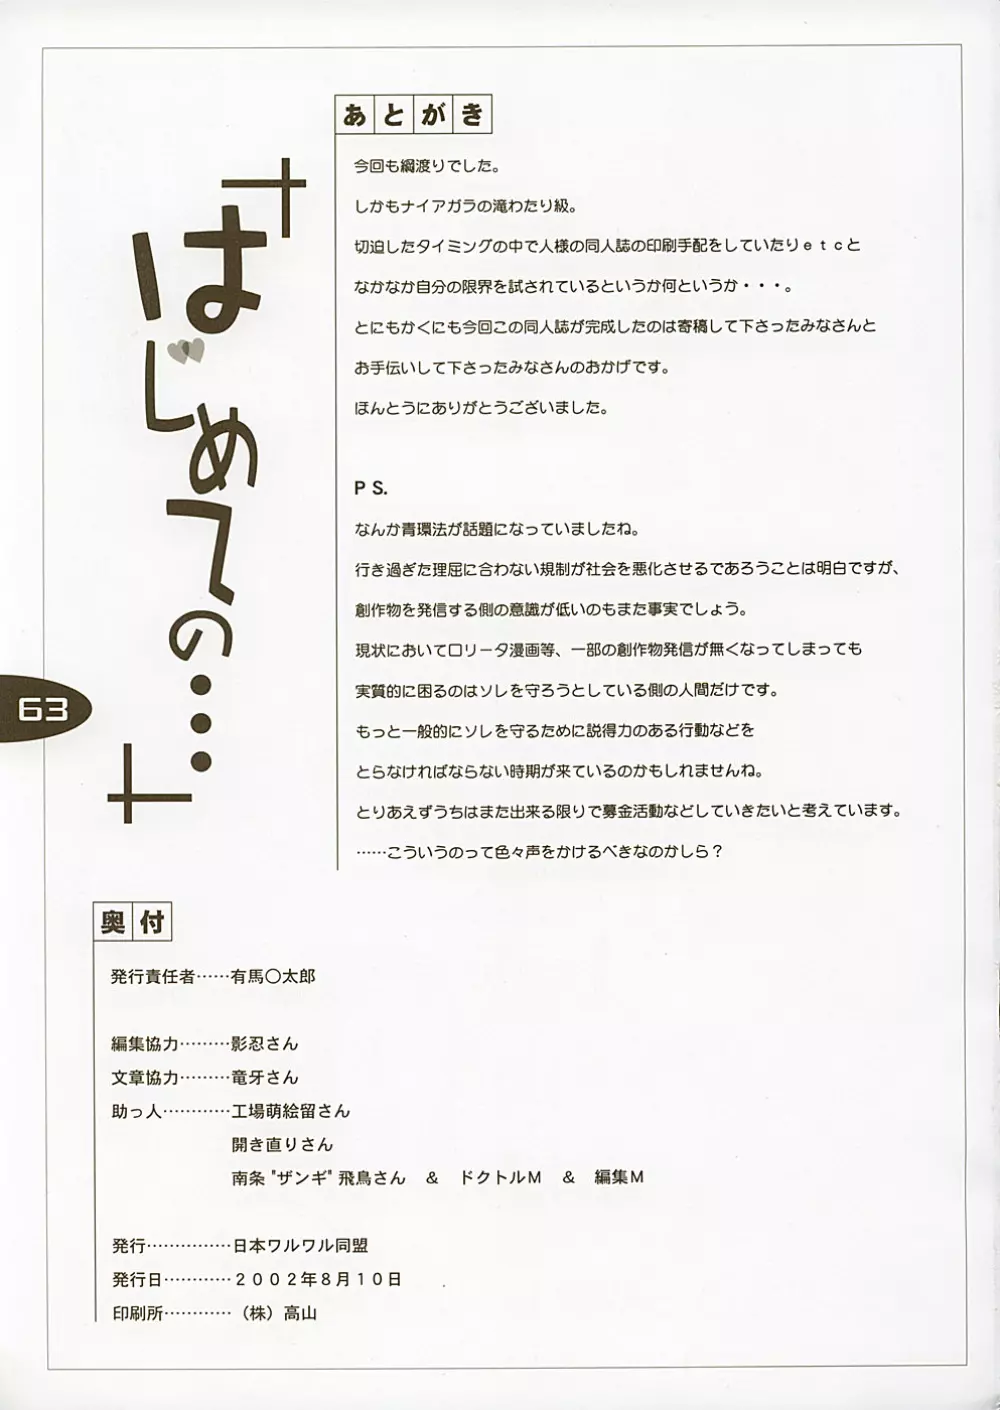 あとがき
今回も綱渡りでした。
しかもナイアガラの滝わたり級。
切迫したタイミングの中で人様の同人誌の印刷手配をしていたりｅｔｃと
なかなか自分の限界を試されているというか何というか・・・。
とにもかくにも今回この同人誌が完成したのは寄稿して下さったみなさんと
お手伝いして下さったみなさんのおかげです。
ほんとうにありがとうございました。
ＰＳ.
なんか青環法が話題になっていましたね。
行き過ぎた理屈に合わない規制が社会を悪化させるであろうことは明白ですが、
創作物を発信する側の意識が低いのもまた事実でしょう。
現状においてロリータ漫画等、一部の創作物発信が無くなってしまっても
実質的に困るのはソレを守ろうとしている側の人間だけです。
もっと一般的にソレを守るために説得力のある行動などを
とらなければならない時期が来ているのかもしれませんね。
とりあえずうちはまた出来る限りで募金活動などしていきたいと考えています。
……こういうのって色々声をかけるべきなのかしら？
はじめての・・・
63
奥付
発行責任者……有馬〇太郎
編集協力………影忍さん
文章協力………竜牙さん
助っ人…………工場萌絵留さん
開き直りさん
南条 "ザンギ" 飛鳥さん　＆　ドクトルＭ　＆　編集Ｍ
発行……………日本ワルワル同盟
発行日…………２００２年８月１０日
印刷所…………（株）高山